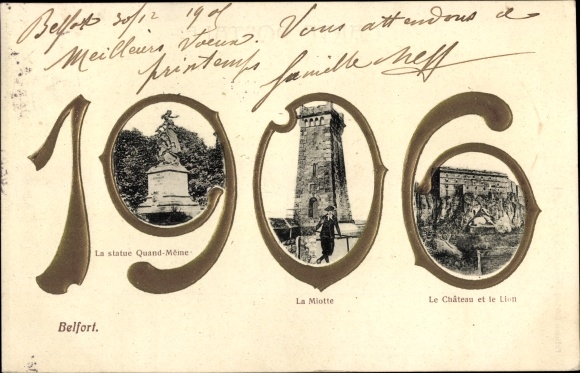 Belfort 30/12 1905
Meilleurs Voeux. Vous attendons a
printemps famille Neff
1906
La statue Quand-Même
La Miotte
Le Château et le Lion
Belfort.